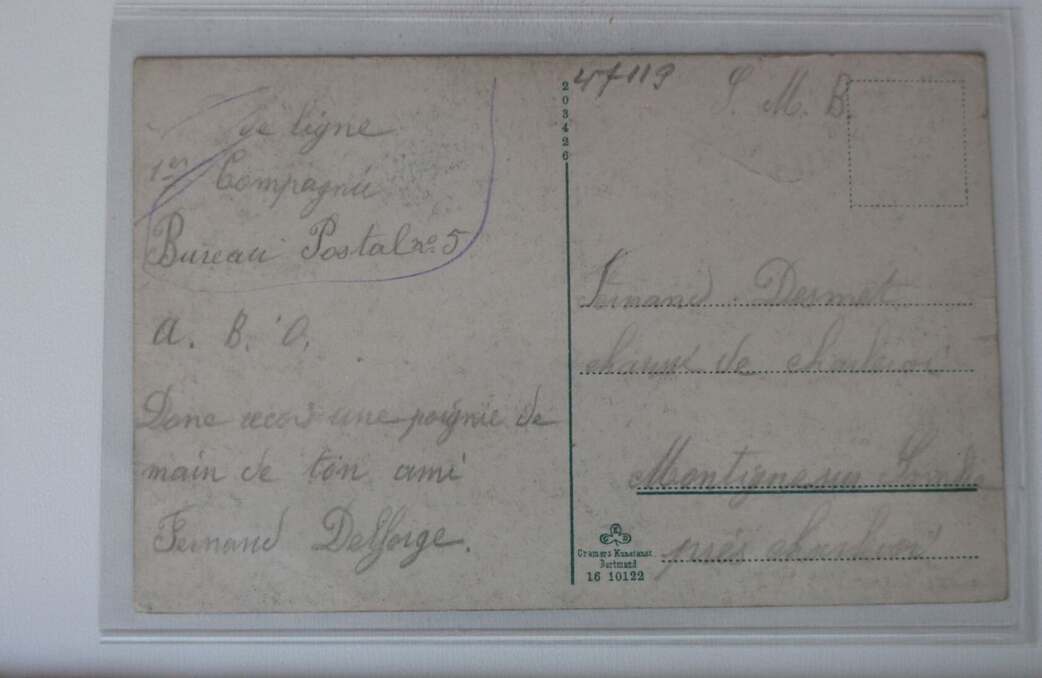 de ligne
1er Compagnie
Bureau Postal no. 5
A. B. O.
Donc recois une poignie de
main de ton ami
Fernand Delforge.
203426
47119
S. M. B.
Fernand Desmet
de charleroi
Montigne sur Sambre
près charleroi
Cramers Kunstanst.
Dortmund
16 10122